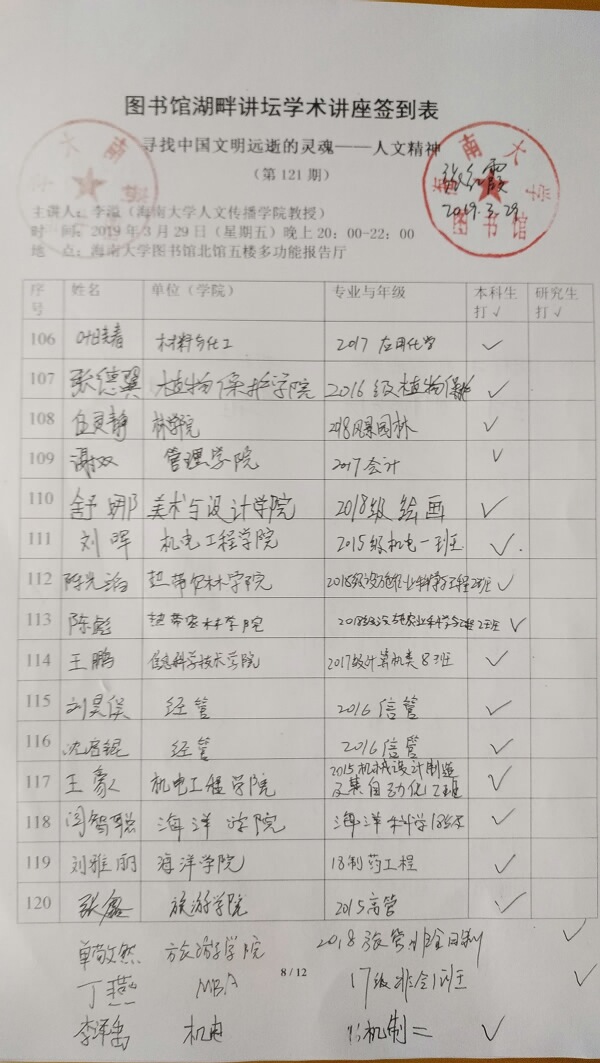 图书馆湖畔讲坛学术讲座签到表
寻找中国文明远逝的灵魂——人文精神
(第 121 期)
海南大学
图书馆
2019.3.29
主讲人：李溢（海南大学人文传播学院教授）
时 间：2019 年 3 月 29 日（星期五）晚上 20：00-22：00
地 点：海南大学图书馆北馆五楼多功能报告厅
序号 姓名 单位（学院） 专业与年级 本科生打√ 研究生打√
106 叶晓青 材料与化工 2017 应用化学 √
107 张德翼 植物保护学院 2016级植物保护 √
108 伍灵静 林学院 2018风景园林 √
109 谢双 管理学院 2017会计 √
110 舒娜 美术与设计学院 2018级绘画 √
111 刘晖 机电工程学院 2015级机电一班 √
112 热带农林学院 2018级设施农业科学与工程2班 √
113 陈彪 热带农林学院 2018级设施农业科学与工程2班 √
114 王鹏 信息科学技术学院 2017级计算机类8班 √
115 刘昊俣 经管 2016信管 √
116 沈启锟 经管 2016信管 √
117 王豪 机电工程学院 2015机械设计制造及其自动化2班 √
118 闫智聪 海洋学院 海洋科学18级 √
119 刘雅丽 海洋学院 18制药工程 √
120 张鑫 旅游学院 2015高管 √
单敬然 旅游学院 2018旅管非全日制 √
8 / 12
丁燕 MBA 17级非全1班 √
李泽禹 机电 机制二 √